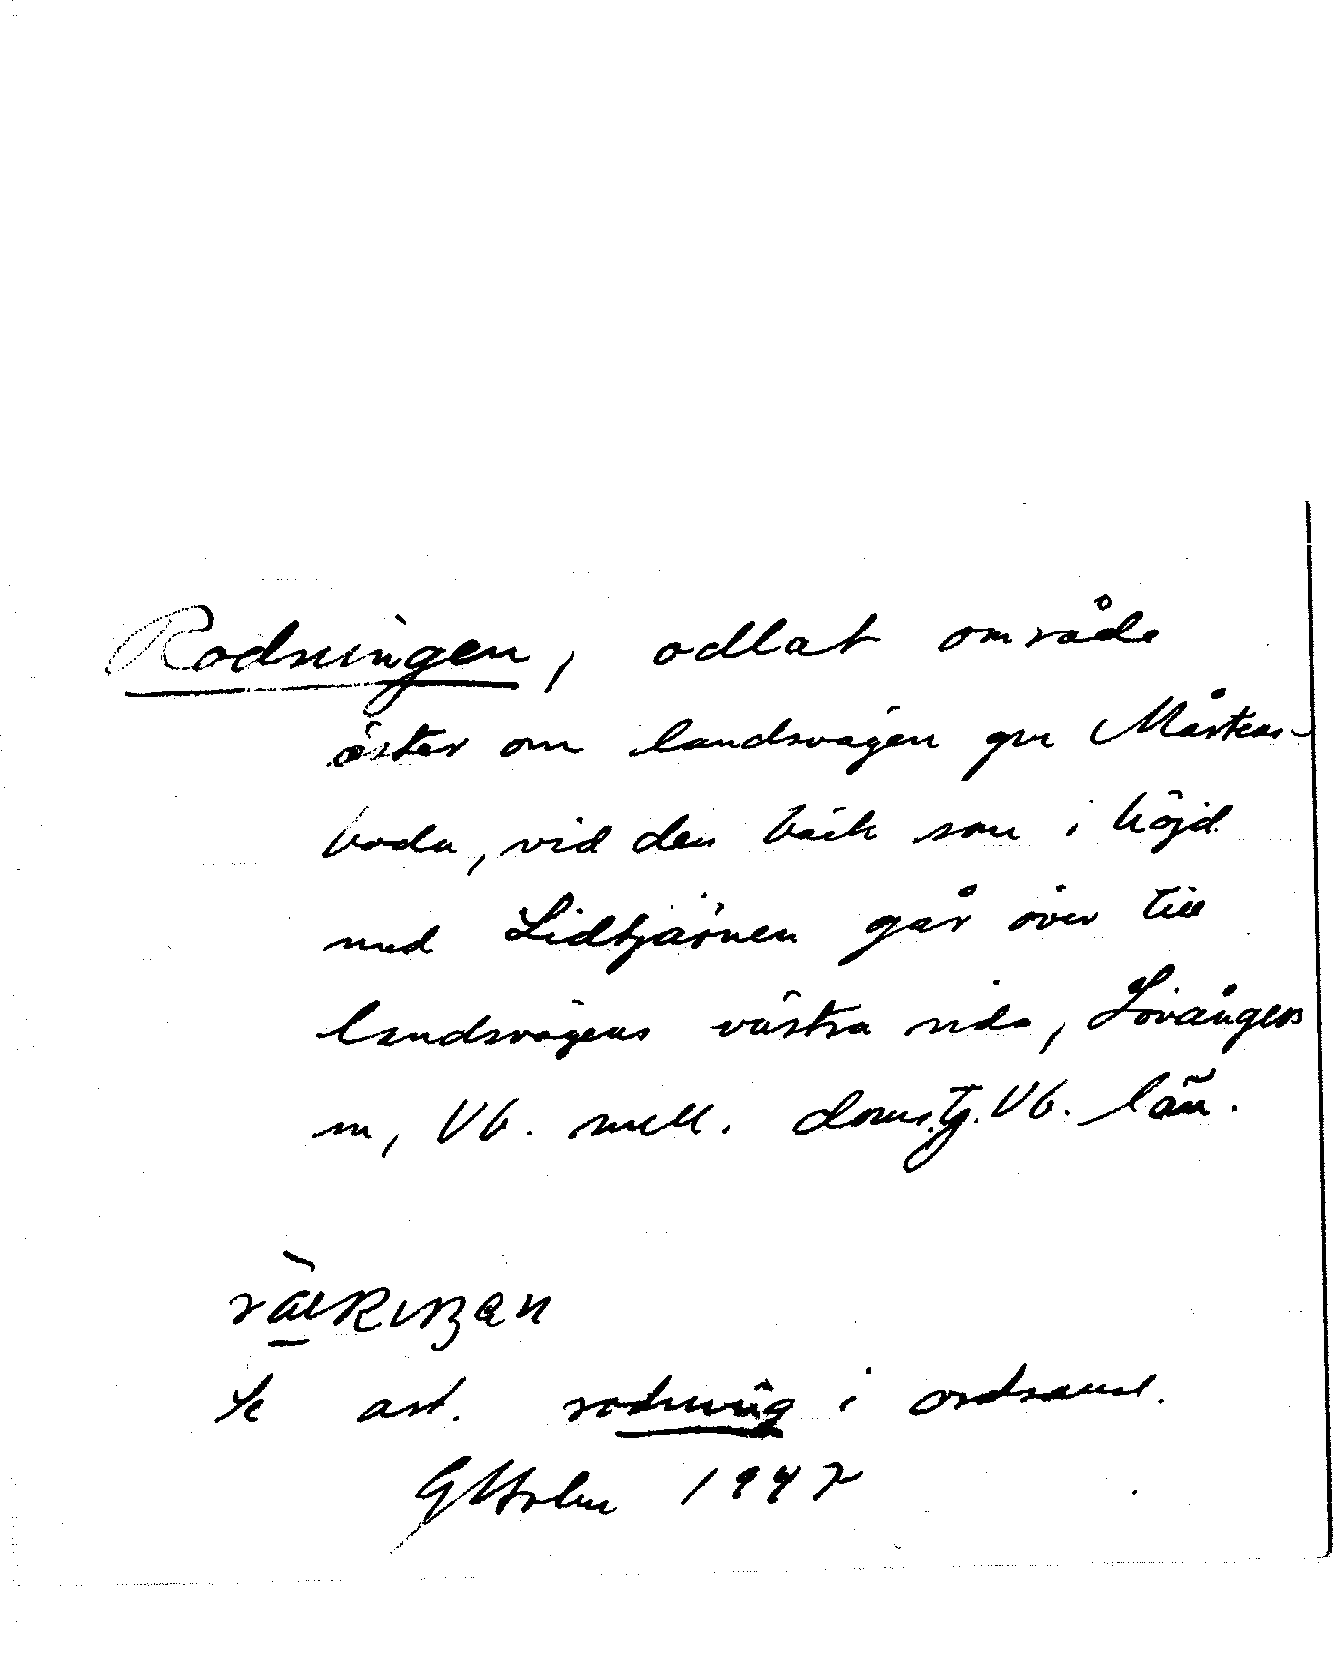 Rodningen, odlat område
öster om landsvägen gm Mårtens-
boda, vid den bäck som i höjd
med Lidtjärnen går över till
landsvägens västra sida, Lövångers
sn, Vb. mell. doms.tj. Vb. län.
Se art. rodning i ordsaml.
G Holm 1947